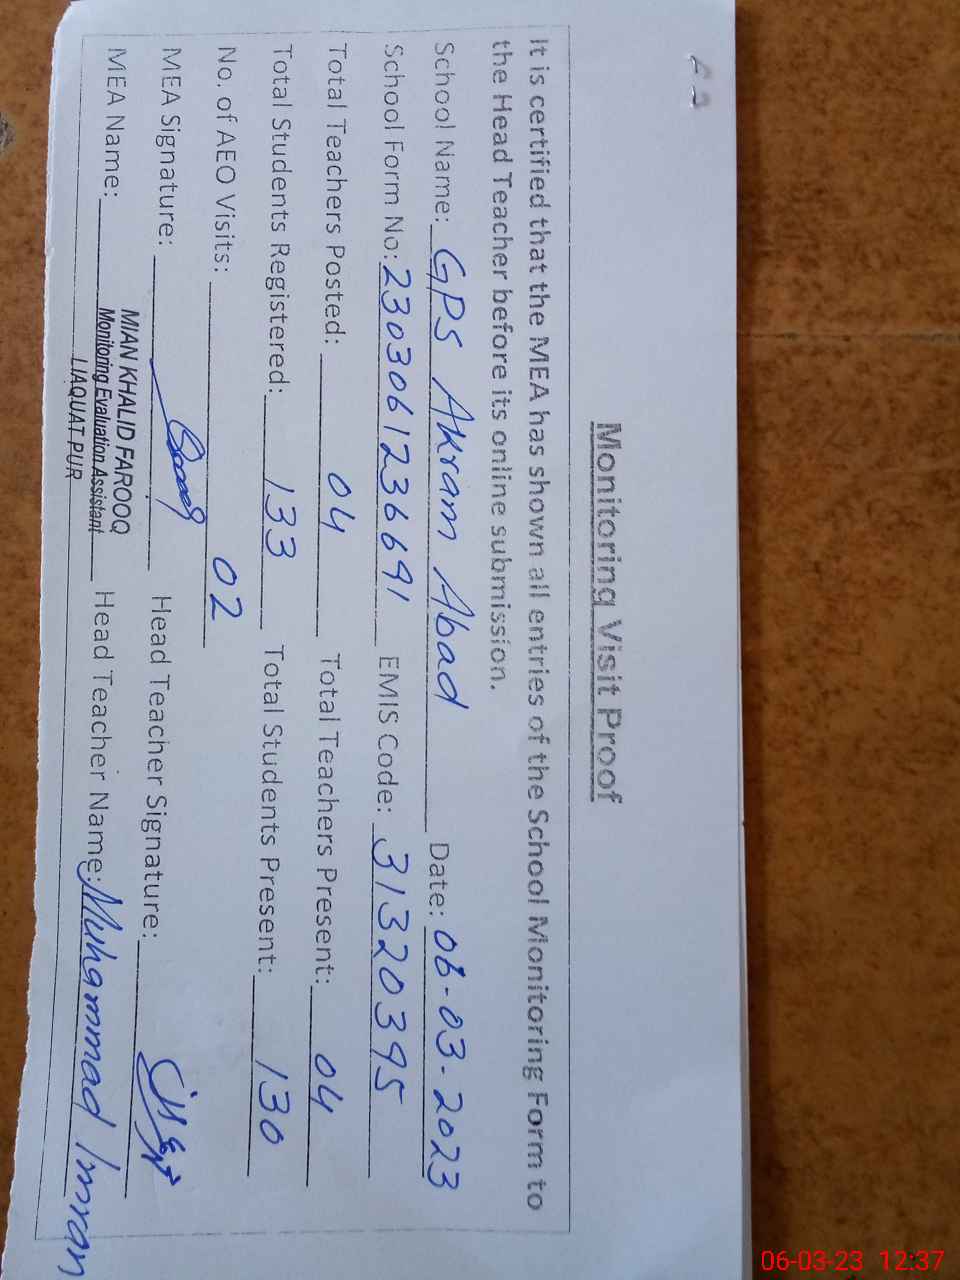 Monitoring Visit Proof
It is certified that the MEA has shown all entries of the School Monitoring Form to
the Head Teacher before its online submission.
School Name: GPS Akram Abad Date: 06-03-2023
School Form No: 23030612366 91 EMIS Code: 31320395
Total Teachers Posted: 04 Total Teachers Present: 04
Total Students Registered: 133 Total Students Present: 130
No. of AEO Visits: 02
MEA Signature: Head Teacher Signature:
MEA Name: MIAN KHALID FAROOQ Head Teacher Name: Muhammad Imran
Monitoring Evaluation Assistant
LIAQUAT PUR
06-03-23 12:37